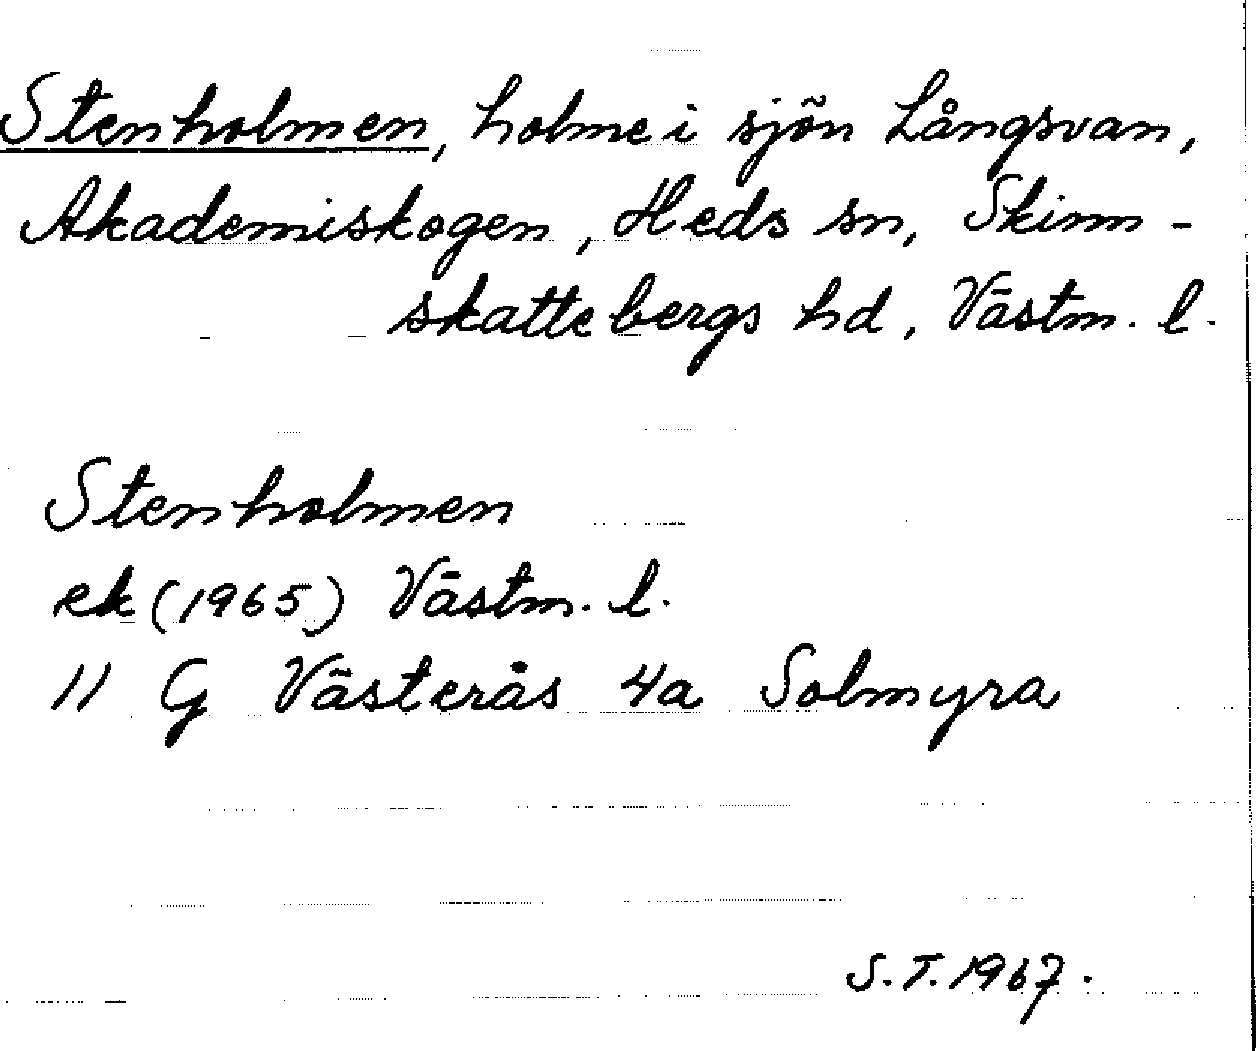 Stenholmen, holme i sjön Långsvan,
Akademiskogen, Heds sn, Skinn-
skattebergs hd, Västm. l.
Stenholmen
ek (1965) Västm. l.
11 G Västerås 4a Solmyra
S.T. 1967.